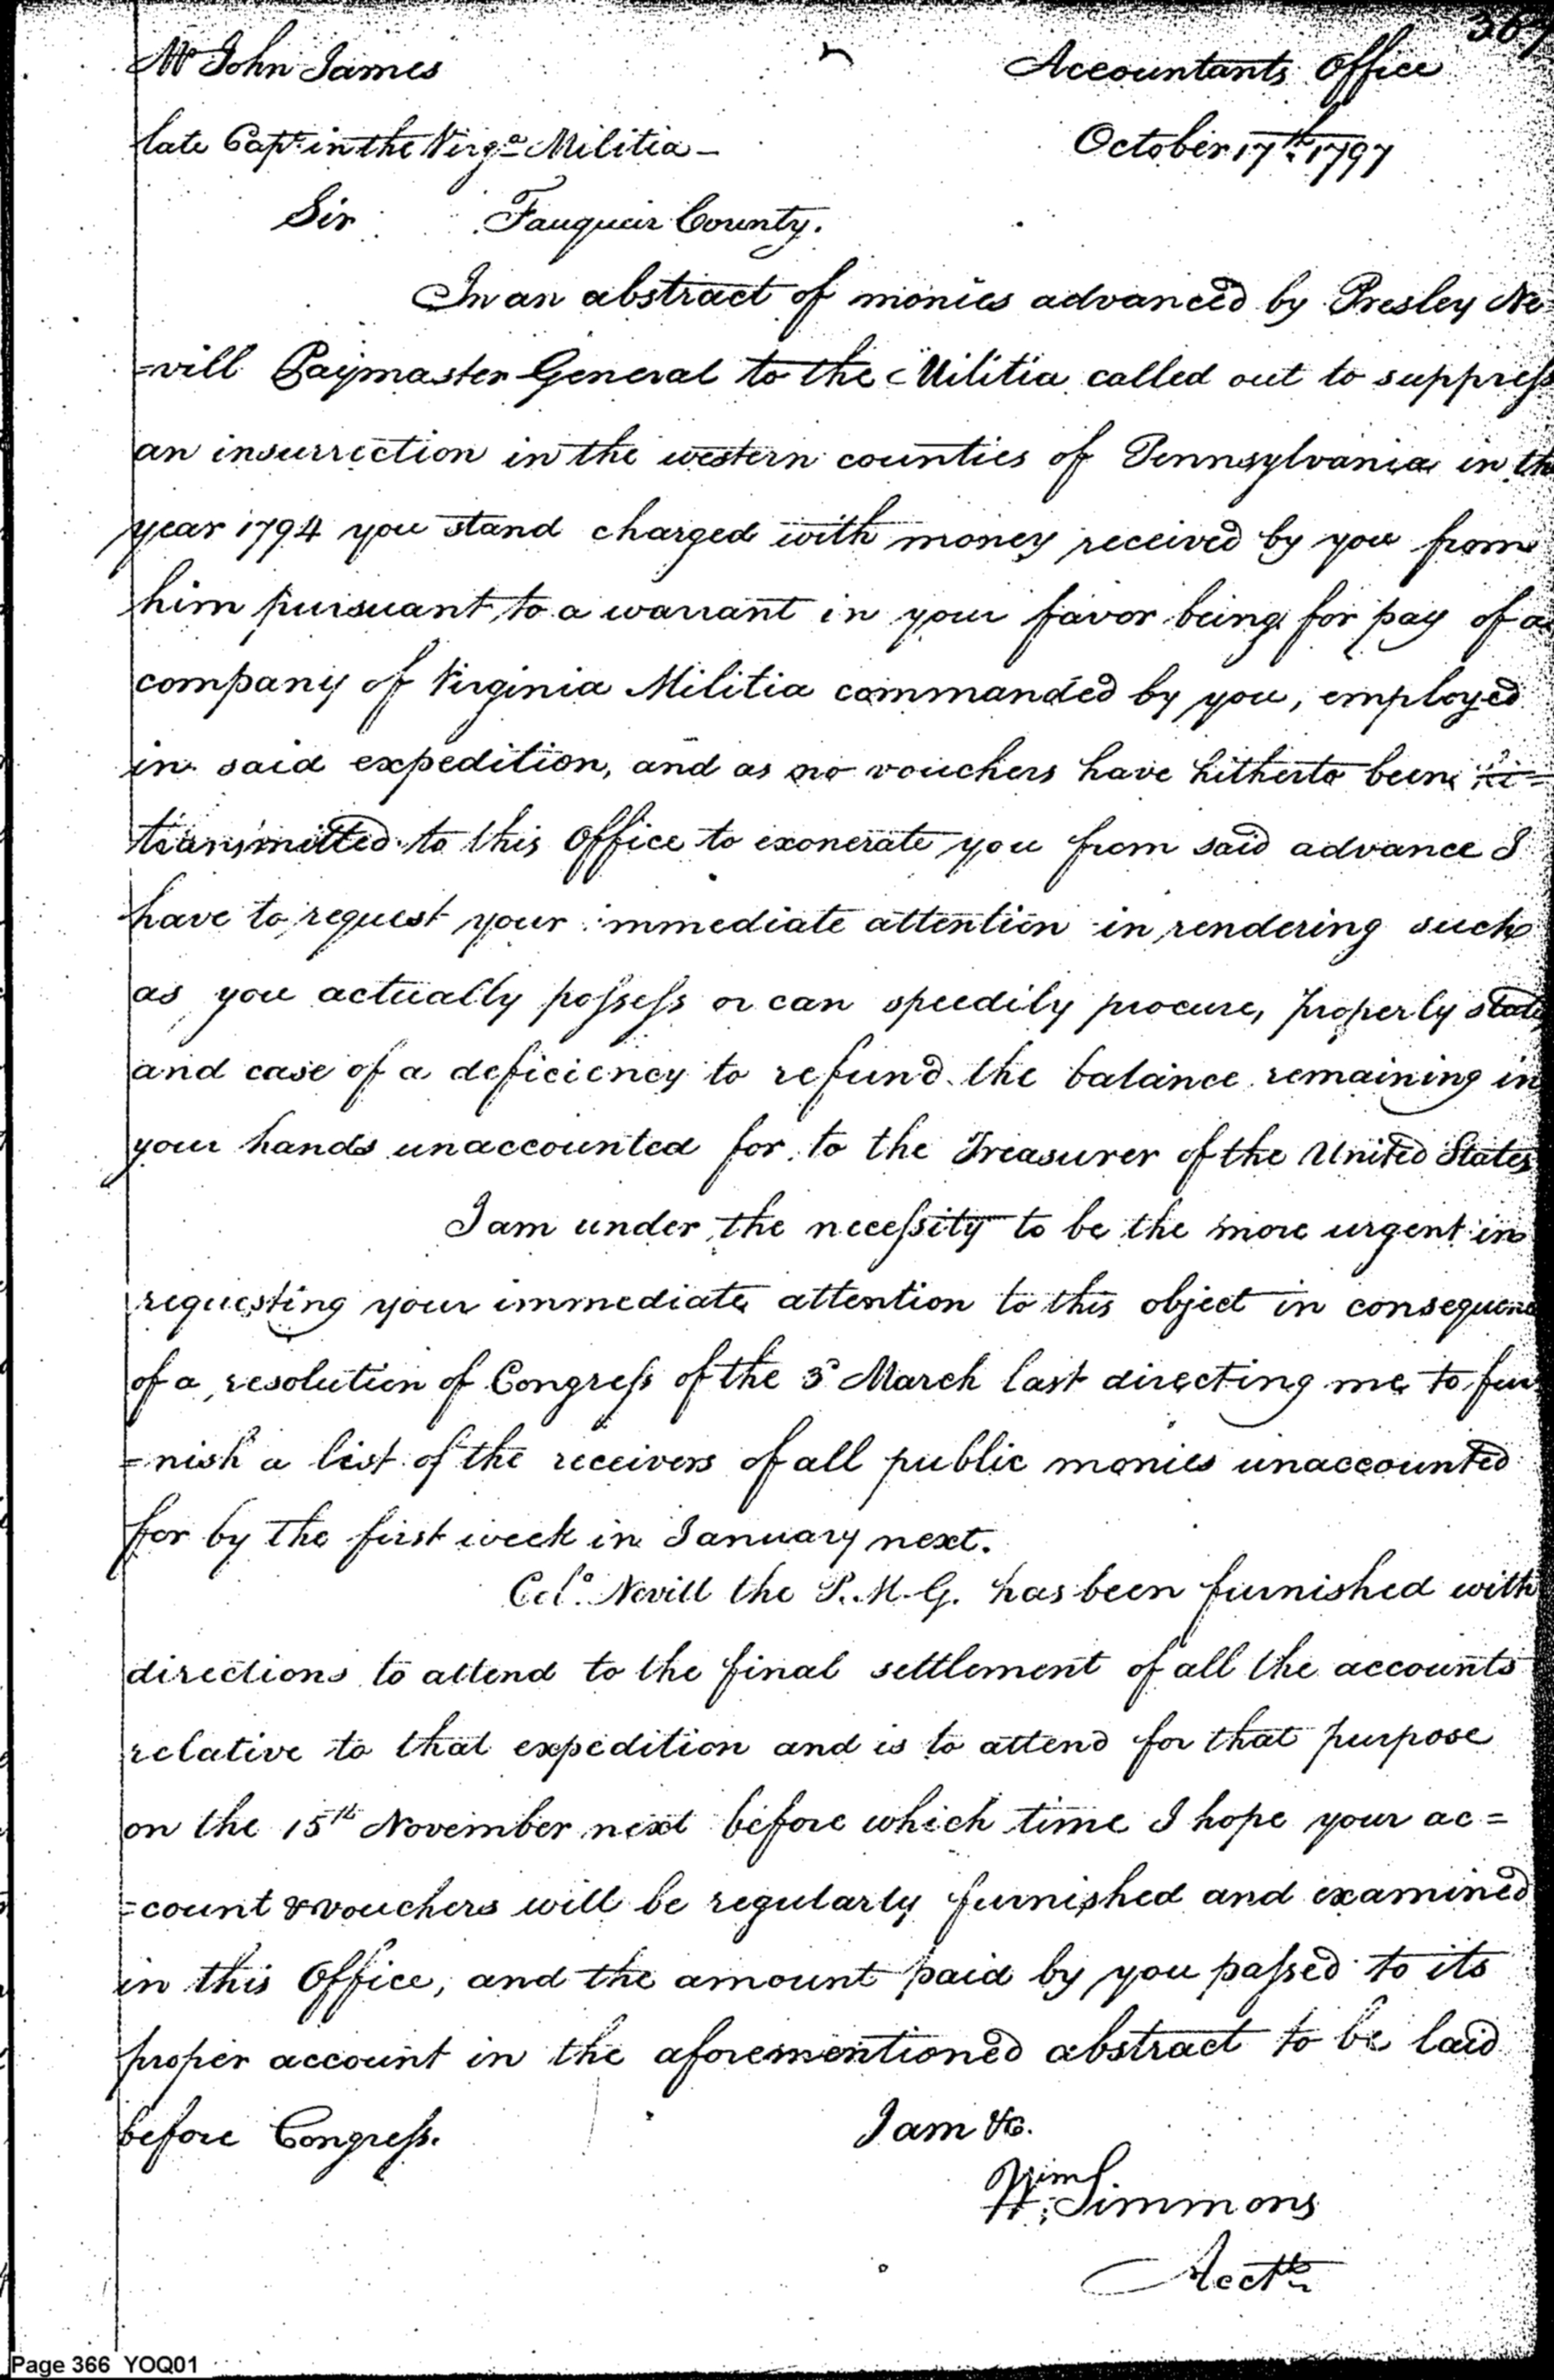 367
Mr John James Accountants Office
late Capt. in the Virga Militia - October 17th 1797
Sir Fauquier County.
In an abstract of monies advanced by Presley Ne
=vill Paymaster General to the Militia called out to suppress
an insurrection in the western counties of Pennsylvania in the
year 1794 you stand charged with money received by you from
him pursuant to a warrant in your favor being for pay of a
company of Virginia Militia commanded by you, employed
in said expedition, and as no vouchers have hitherto been
transmitted to this Office to exonerate you from said advance I
have to request your immediate attention in rendering such
as you actually possess or can speedily procure, properly stated
and case of a deficiency to refund the balance remaining in
your hands unaccounted for to the Treasurer of the United States
I am under the necessity to be the more urgent in
requesting your immediate attention to this object in consequence
of a resolution of Congress of the 3d March last directing me to fur
=nish a list of the receivers of all public monies unaccounted
for by the first week in January next.
Colo. Nevill the P. M. G. has been furnished with
directions to attend to the final settlement of all the accounts
relative to that expedition and is to attend for that purpose
on the 15th November next before which time I hope your ac=
=count & vouchers will be regularly furnished and examined
in this Office, and the amount paid by you passed to its
proper account in the aforementioned abstract to be laid
before Congress. I am &c.
Wm Simmons
Acctt
Page 366 YOQ01